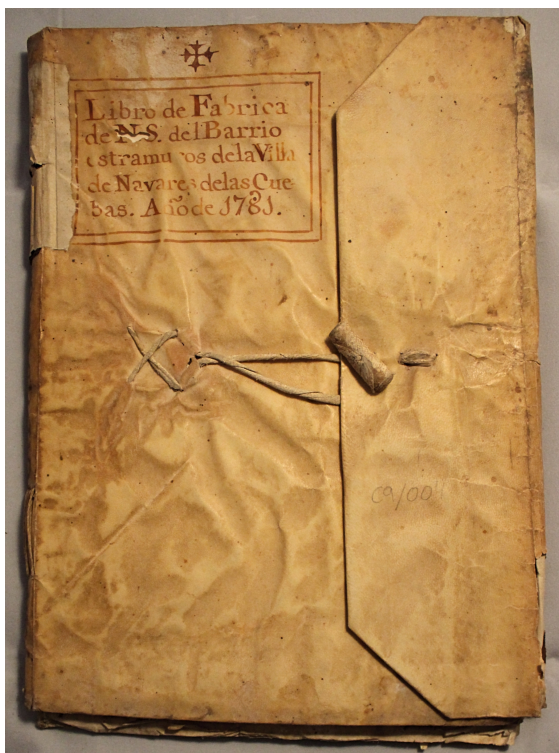 Libro de Fabrica
de N S. del Barrio
estramuros dela Villa
de Navares delas Cue-
bas. Año de 1781.
C9/004